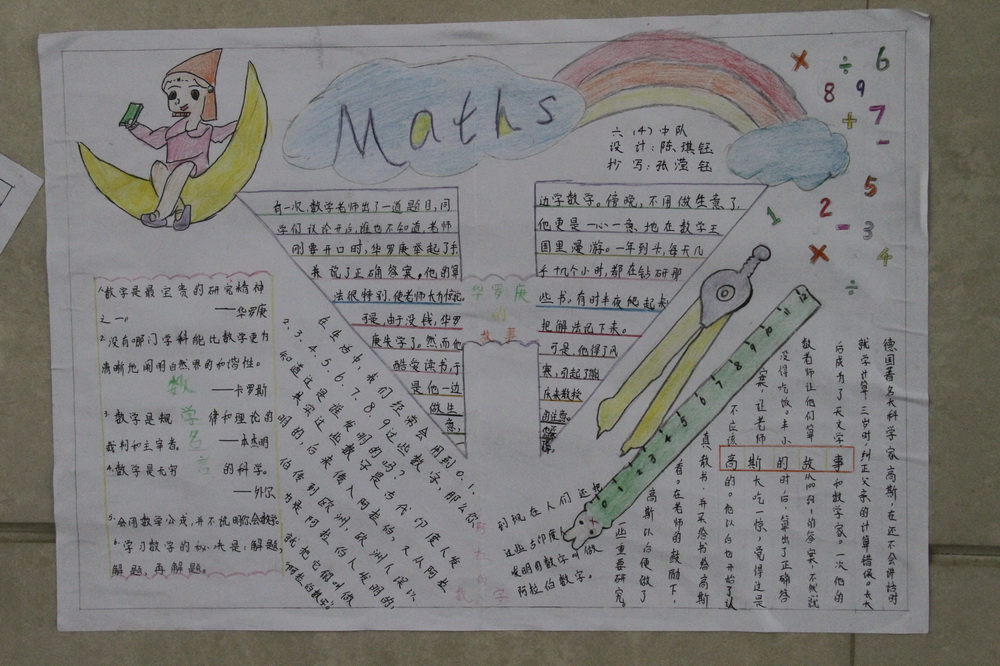 Maths
六(4)中队
设计:陈琪钰
抄写:张滢钰
有一次,数学老师出了一道题目,同
学们议论开后,谁也不知道,老师
刚要开口时,华罗庚举起了手
来说了正确答案。他的算
法很特别,使老师大为惊讶。
可是,由于没钱,华罗
庚失学了。然而他
酷爱读书,于
是他一边
做生
意,
边学数学。傍晚,不用做生意了,
他更是一心一意地在数学王
国里漫游。一年到头,每天几
乎十几个小时,都在钻研那
些书。有时半夜爬起来
把解法记下来。
可是,他得了风
寒,引起了
华罗庚
的
故事
1.数学是最宝贵的研究精神
之一。
——华罗庚
2.没有哪门学科能比数学更为
清晰地阐明自然界的和谐性。
——卡罗斯
3.数学是规律和理论的
裁判和主宰者。——本杰明
4.数学是无穷的科学。
——外尔
5.会用数学公式,并不说明你会数学。
6.学习数学的秘诀是:解题,
解题,再解题。
数
学
名
言
在生活中,我们经常会用到0.1.
2.3.4.5.6.7.8.9这些数字,那么你
知道这是谁发明的吗?
其实这些数字是古代印度人发
明的,后来传入阿拉伯,又从阿拉
伯传到欧洲,欧洲人误以
为是阿拉伯人发明的,
就把它们叫做
“阿拉伯数字”,
到现在人们还把
这些古印度人
发明的数字叫做
阿拉伯数字。
数字
高斯的故事
德国著名大科学家高斯,在还不会讲话时
就学计算,三岁时,纠正父亲的计算错误。长大
后成为了天文学家和数学家。一次他的
数老师让他们算
没得吃饭。
答案,让老师大吃一惊,觉得这是
不应该的。他以后也开始了认
真教书,并不
看。在老师的鼓励下,
高斯以后便做了
一些重要研究。
0 1 2 3 4 5 6 7 8 9 10 11 12
× ÷ 6
8 9
+ 7
-
5
1 2 - 3
× 4
÷